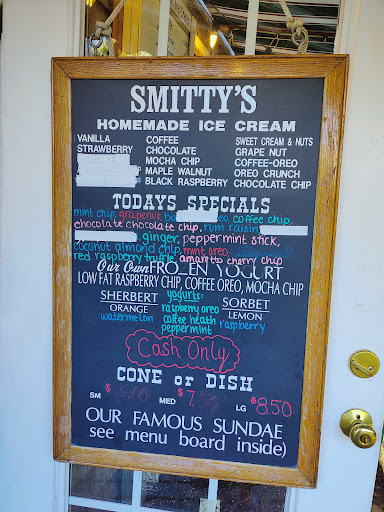 SMITTY'S
HOMEMADE ICE CREAM
VANILLA COFFEE SWEET CREAM & NUTS
STRAWBERRY CHOCOLATE GRAPE NUT
MOCHA CHIP COFFEE-OREO
MAPLE WALNUT OREO CRUNCH
BLACK RASPBERRY CHOCOLATE CHIP
TODAYS SPECIALS
mint chip, grapenut, oreo, coffee chip,
chocolate chocolate chip, rum raisin
ginger, peppermint stick,
coconut almond chip, mint oreo
red raspberry truffle, amaretto cherry chip
Our Own FROZEN YOGURT
LOW FAT RASPBERRY CHIP, COFFEE OREO, MOCHA CHIP
SHERBERT yogurts: SORBET
ORANGE raspberry oreo LEMON
watermelon coffee heath raspberry
peppermint
Cash Only
CONE or DISH
SM $6.00 MED $7. LG $8.50
OUR FAMOUS SUNDAE
see menu board inside)